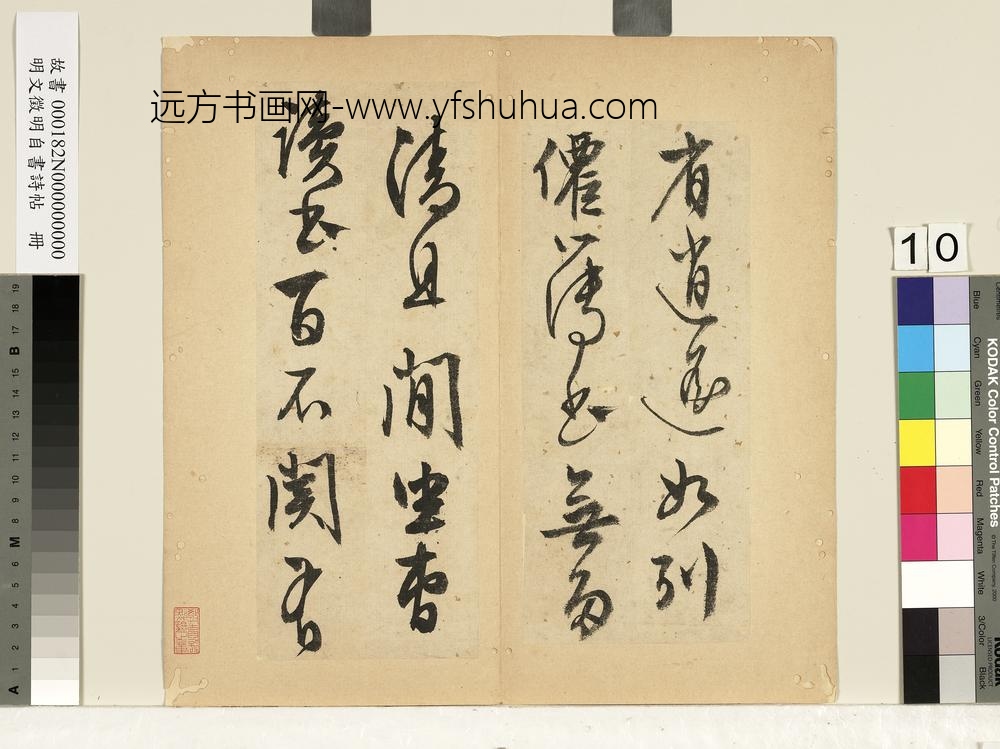 远方书画网-www.yfshuhua.com
故書 000182N000000000
明文徵明自書詩帖 冊
省逍遥如列
僊簿書無
清且閒坐曹
讀書百不関
10
KODAK Color Control Patches
Blue
Cyan
Green
Yellow
Red
Magenta
White
3/Color
Black
A 1 2 3 4 5 6 M 8 9 10 11 12 13 14 15 B 17 18 19